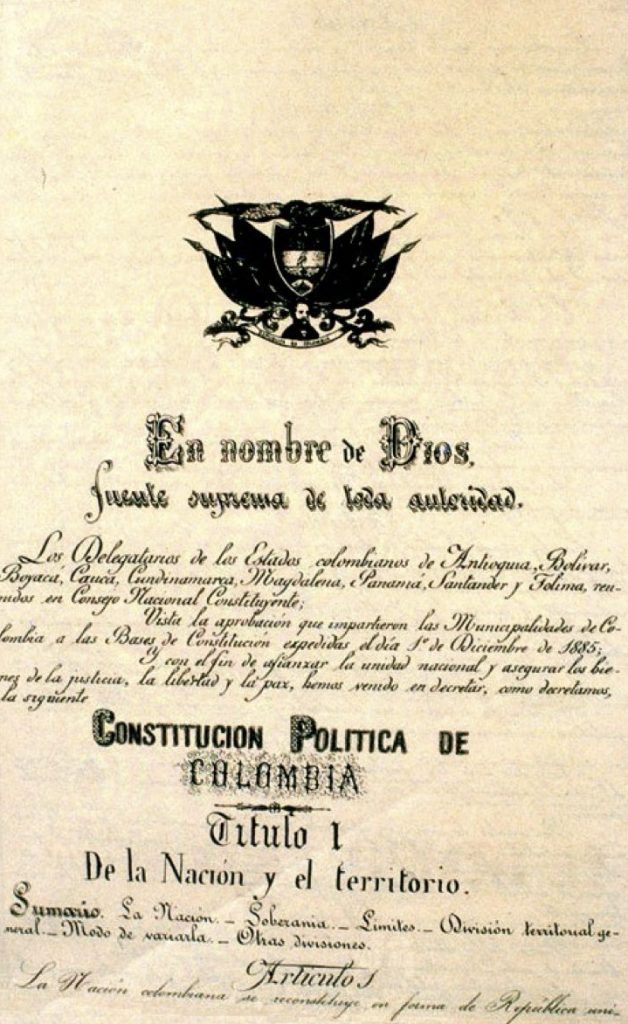 En nombre de Dios,
fuente suprema de toda autoridad.
Los Delegatarios de los Estados colombianos de Antioquia, Bolívar,
Boyacá, Cauca, Cundinamarca, Magdalena, Panamá, Santander y Tolima, reu-
nidos en Consejo Nacional Constituyente;
Vista la aprobación que impartieron las Municipalidades de Co-
lombia a las Bases de Constitución expedidas el día 1º de Diciembre de 1885;
y con el fin de afianzar la unidad nacional y asegurar los bie-
nes de la justicia, la libertad y la paz, hemos venido en decretar, como decretamos,
la siguiente
CONSTITUCION POLITICA DE
COLOMBIA
Título I
De la Nación y el territorio.
Sumario. La Nación. – Soberanía. – Límites. – División territorial ge-
neral. – Modo de variarla. – Otras divisiones.
Artículo 1
La Nación colombiana se reconstituye en forma de República uni-